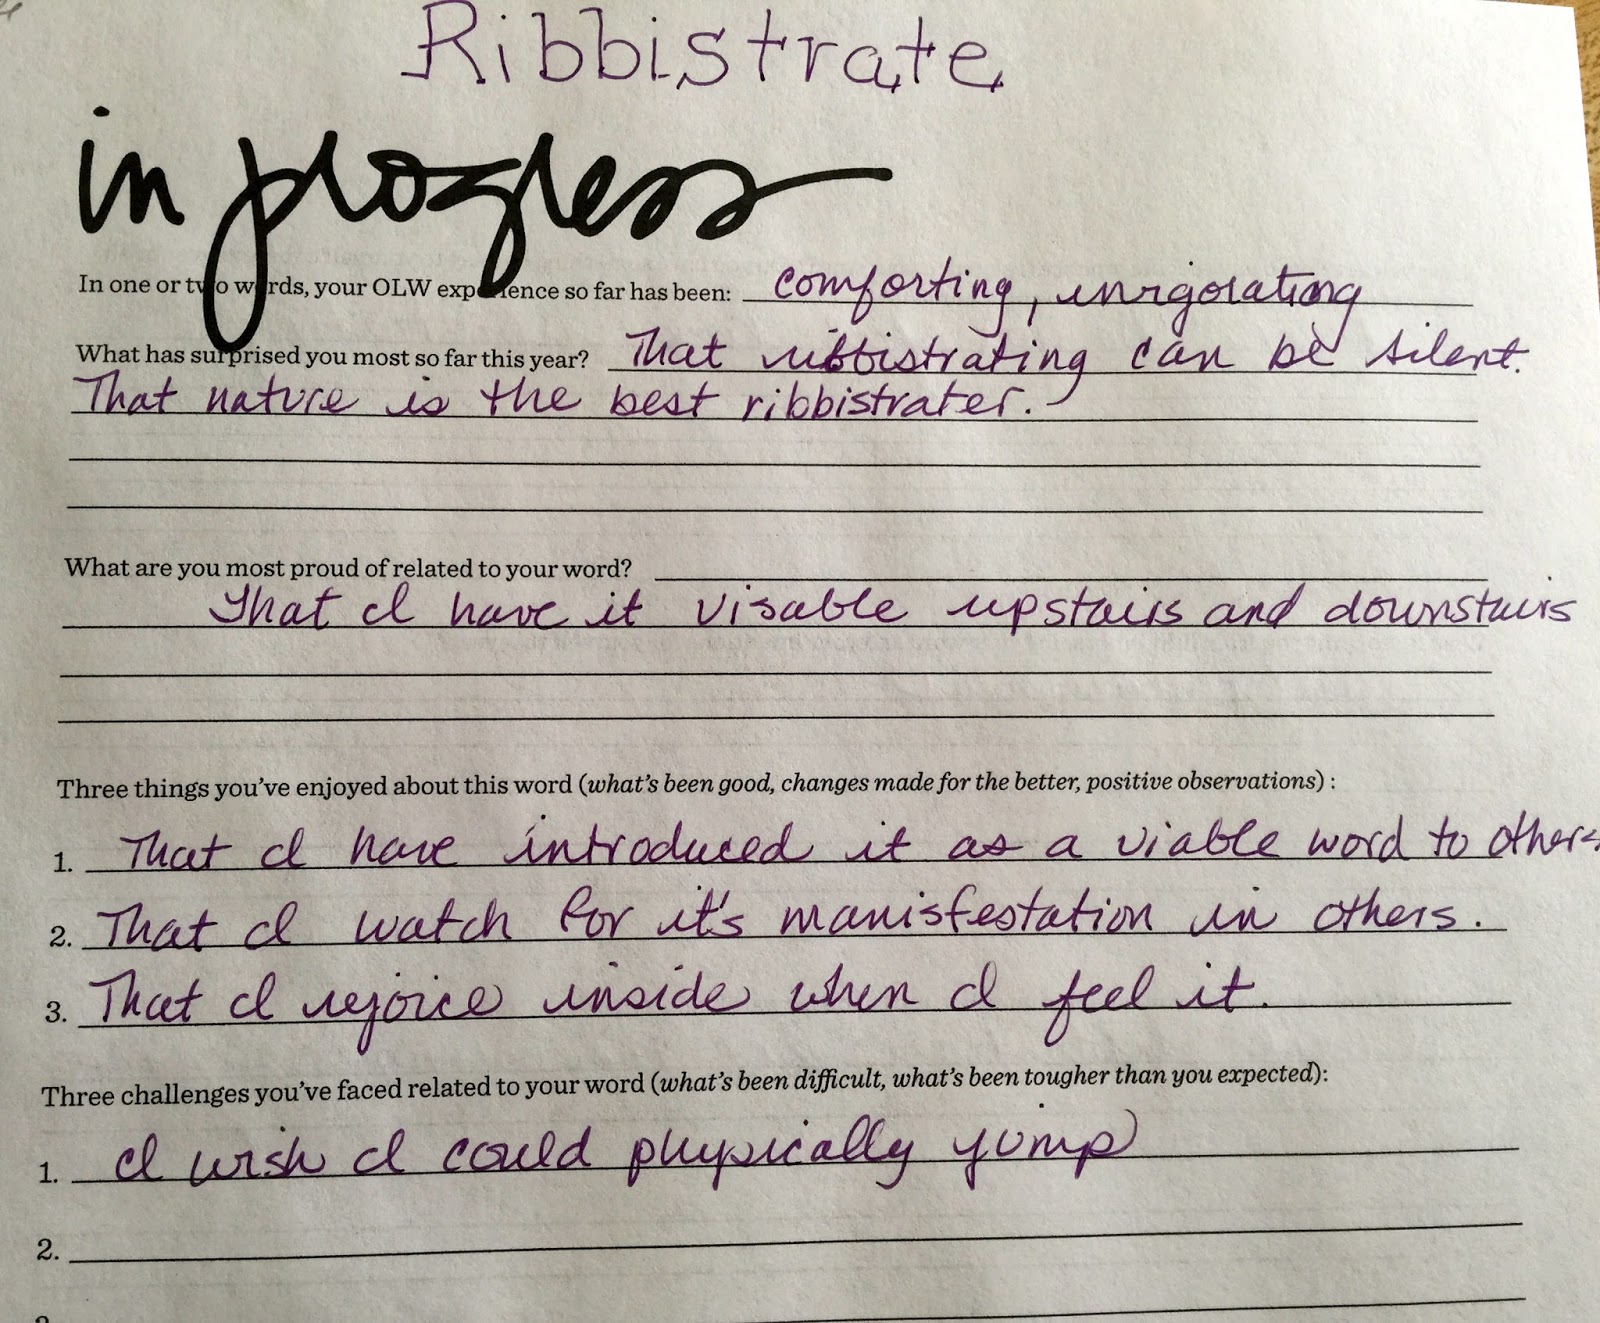 Ribbistrate
in progress
In one or two words, your OLW experience so far has been: comforting, invigorating
What has surprised you most so far this year? That ribbistrating can be silent.
That nature is the best ribbistrater.
What are you most proud of related to your word?
That I have it visable upstairs and downstairs
Three things you've enjoyed about this word (what's been good, changes made for the better, positive observations) :
1. That I have introduced it as a viable word to others
2. That I watch for it's manisfestation in others.
3. That I rejoice inside when I feel it.
Three challenges you've faced related to your word (what's been difficult, what's been tougher than you expected):
1. I wish I could physically jump
2.